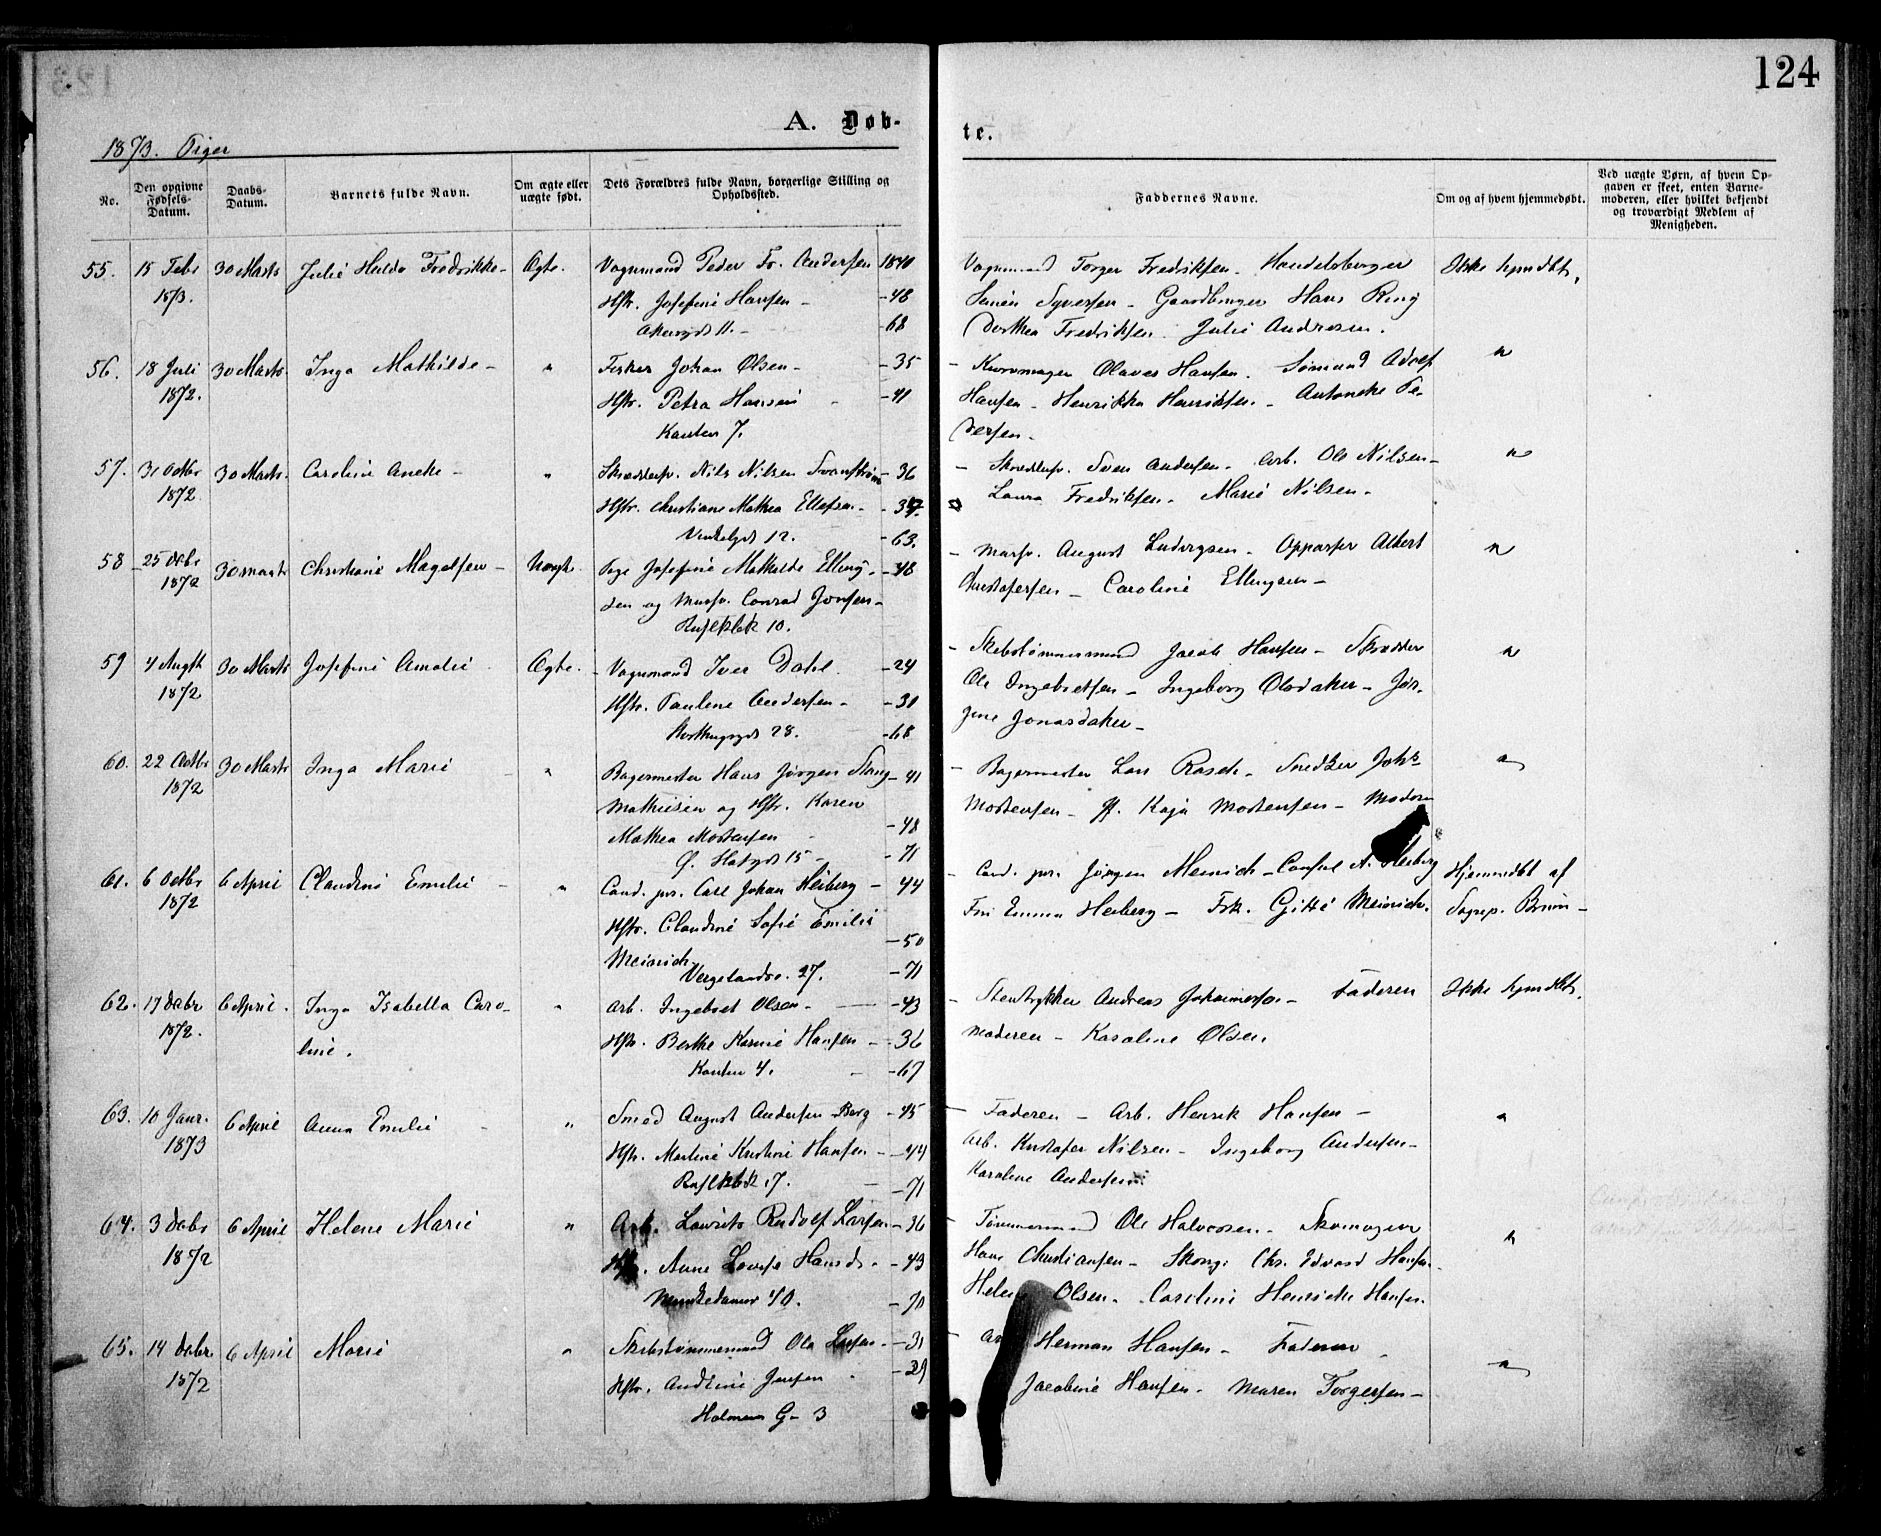 124
A. Døb-
te.
1873. Piger
No.
Den opgivne Fødsels-Datum.
Daabs-Datum.
Barnets fulde Navn.
Om ægte eller uægte født.
Dets Forældres fulde Navn, borgerlige Stilling og Opholdssted.
Faddernes Navne.
Om og af hvem hjemmedøbt.
Ved uægte Børn, af hvem Opgaven er skeet, enten Barnemoderen, eller hvilket bekjendt og troværdigt Medlem af Menigheden.
55. 15 Febr 30 Marts Julie Hulda Fredrikke - Ægte. Vognmand Peder Fr. Andersen 1840
1873. Hstr. Josefine Hansen - - 48
11. - - 68
Vognmand Torger Fredriksen - Handelsborger
Syversen - Gaardbruger Hans Ring
Dorthea Fredriksen. Julie Andresen.
Ikke hjmdbt.
56. 18 Juli 30 Marts Inga Mathilde - " Fisker Johan Olsen - - 35
1872. Hstr. Petra Hansen - - 41
7.
- Olaves Hansen. Sømand Adolf
Hansen - Henrikka Henriksen - Antonette Pe-
dersen -
"
57. 31 Octbr 30 Marts. Caroline Anette - " Nils Nilsen Svanstrøm - 36
1872. Hstr. Christiane Mathea Ellefsen - - 37.
12. - 63.
- Sven Andersen - Arb. Ole Nilsen -
Laura Fredriksen - Marie Nilsen -
"
58 25 Decbr 30 Marts Christiane Magelsen - Uægte. Pige Josefine Mathilde Elling- - 48
1872 sen og Conrad Jonsen -
10.
- August Ludvigsen - Oppasser Albert
Christofersen - Caroline Ellingsen -
"
59 4 Augst 30 Marts Josefine Amalie Ægte. - Vognmand Iver Dahl - 24
1872 Hstr. Pauline Andersen - - 30
28. - 68
- Skibstømmermand Jacob Hansen - Skrædder
Ole Ingebretsen - Ingeborg Olsdatter - Jør-
gine Jonasdatter -
"
60. 22 Octbr 30 Marts Inga Marie - " Bagermester Hans Jørgen Stang - 41
1872 Mathiesen og Hstr. Karen
Mathea Mortensen - - 48
15 - - 71
- Bagermester Lars Rasch - Snedker Johs
Mortensen - Kaja Mortensen - Moderen
"
61. 6 Octbr 6 April Claudine Emilie - " Cand. jur. Carl Johan Heiberg - 44
1872 Hstr. Claudine Sofie Emilie - 50
Meinich
Vergelandsv. 27. - 71
- Cand. jur. Jørgen Meinich - Consul A. Heiberg
Fru Emma Heiberg - Frk. Gitte Meinich.
Hjemmedbt af
Sognep. Bruun -
62. 17 Decbr 6 April. Inga Isabella Caro- " Arb. Ingebret Olsen - - 43
1872. line. Hstr. Berthe Karine Hansen - - 36
4. - - 67
- Stentrykker Andreas Johannesen - Faderen
Moderen - Karoline Olsen.
Ikke hjmdbt.
63. 10 Janr. 6 April Anna Emilie - " Smed August Andersen Berg - 45
1873 Hstr. Martine Kristine Hansen - - 44
17. - - 71
- Faderen - Arb. Henrik Hansen -
Arb. Kristofer Nilsen - Ingeborg Andersen -
Karoline Andersen
"
64. 3 Decbr 6 April Helene Marie " Arb. Laurits Rudolf Larsen - 36
1872 Hstr. Anne Lovise Hansd. - - 43
Munkedamsv 40. - 70
- Tømmermand Ole Halvorsen - Skomager
Hans Christiansen - Chr. Edvard Hansen -
Helene Olsen. Caroline Henriette Hansen.
"
65. 14 Decbr 6 April Marie " Skibstømmermand Ole Larsen - - 31
1872 Hstr. Andrine Jensen - 39
Holmens G - 3
- Arb Herman Hansen - Faderen -
Jacobine Hansen - Maren Torgersen -
"